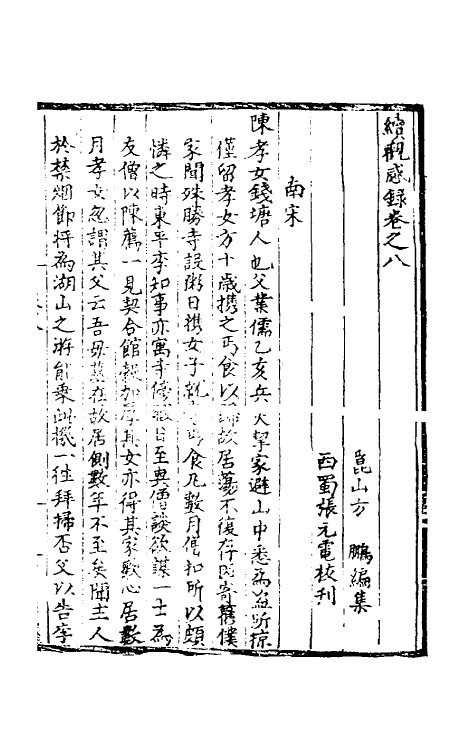 續觀感録卷之八
崑山方 鵬編集
西蜀張元電校刋
南宋
陳孝女錢塘人也父業儒乙亥兵火挈家避山中悉為盗所掠
僅留孝女方十歳携之丐食以歸故居蕩不復存因寄舊僕
家間殊勝寺設粥日携女子就丐食凡數月僧扣所以頗
憐之時東平李知事亦寓寺傍暇日至與僧談欲謀一士為
友僧以陳薦一見契合館穀加厚其女亦得其家歡心居數
月孝女忽謂其父云吾母墓在故居側數年不至矣聞主人
於禁烟節将為湖山之游能乗此機一徃拜掃否父以告李